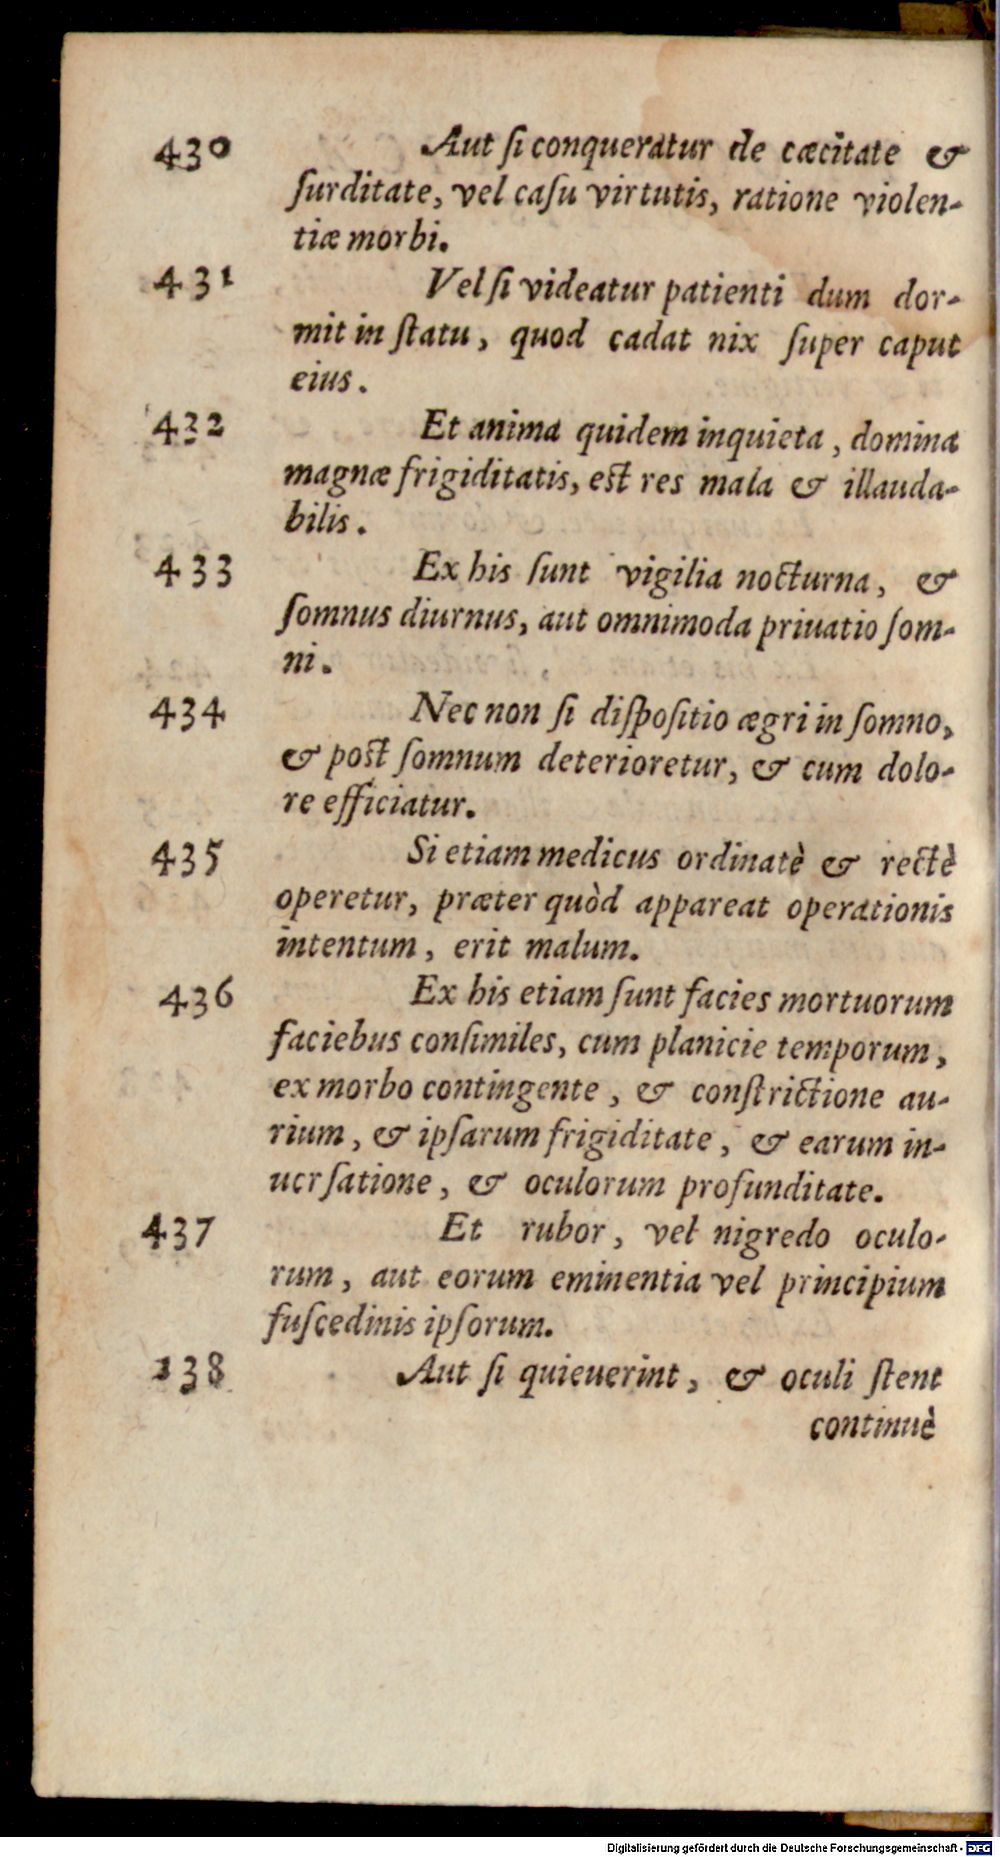 430 Aut ſi conqueratur de cæcitate &
ſurditate, vel caſu virtutis, ratione violen-
tiæ morbi.
431 Vel ſi videatur patienti dum dor-
mit in ſtatu, quod cadat nix ſuper caput
eius.
432 Et anima quidem inquieta, domina
magnæ frigiditatis, eſt res mala & illauda-
bilis.
433 Ex his ſunt vigilia nocturna, &
ſomnus diurnus, aut omnimoda priuatio ſom-
ni.
434 Nec non ſi diſpoſitio ægri in ſomno,
& poſt ſomnum deterioretur, & cum dolo-
re efficiatur.
435 Si etiam medicus ordinatè & rectè
operetur, præter quòd appareat operationis
intentum, erit malum.
436 Ex his etiam ſunt facies mortuorum
faciebus conſimiles, cum planicie temporum,
ex morbo contingente, & conſtrictione au-
rium, & ipſarum frigiditate, & earum in-
uerſatione, & oculorum profunditate.
437 Et rubor, vel nigredo oculo-
rum, aut eorum eminentia vel principium
fuſcedinis ipſorum.
138 Aut ſi quieuerint, & oculi ſtent
continuè
Digitalisierung gefördert durch die Deutsche Forschungsgemeinschaft - DFG